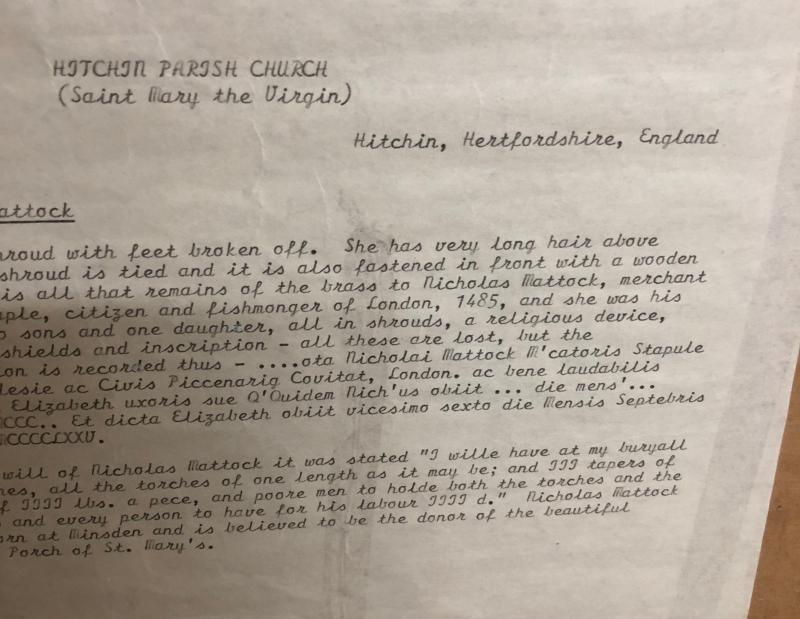 HITCHIN PARISH CHURCH
(Saint Mary the Virgin)
Hitchin, Hertfordshire, England
attock
hroud with feet broken off. She has very long hair above
shroud is tied and it is also fastened in front with a wooden
is all that remains of the brass to Nicholas Mattock, merchant
aple, citizen and fishmonger of London, 1485, and she was his
o sons and one daughter, all in shrouds, a religious device,
shields and inscription - all these are lost, but the
on is recorded thus - ....ota Nicholai Mattock M'catoris Stapule
lesie ac Civis Piccenarig Covitat, London. ac bene laudabilis
Elizabeth uxoris sue Q'Quidem Nich'us obiit ... die mens'...
CCC.. Et dicta Elizabeth obiit vicesimo sexto die Mensis Septebris
MCCCCLXXV.
will of Nicholas Mattock it was stated "I wille have at my buryall
hes, all the torches of one length as it may be; and III tapers of
f IIII lbs. a pece, and poore men to holde both the torches and the
and every person to have for his labour IIII d." Nicholas Mattock
orn at Minsden and is believed to be the donor of the beautiful
Porch of St. Mary's.